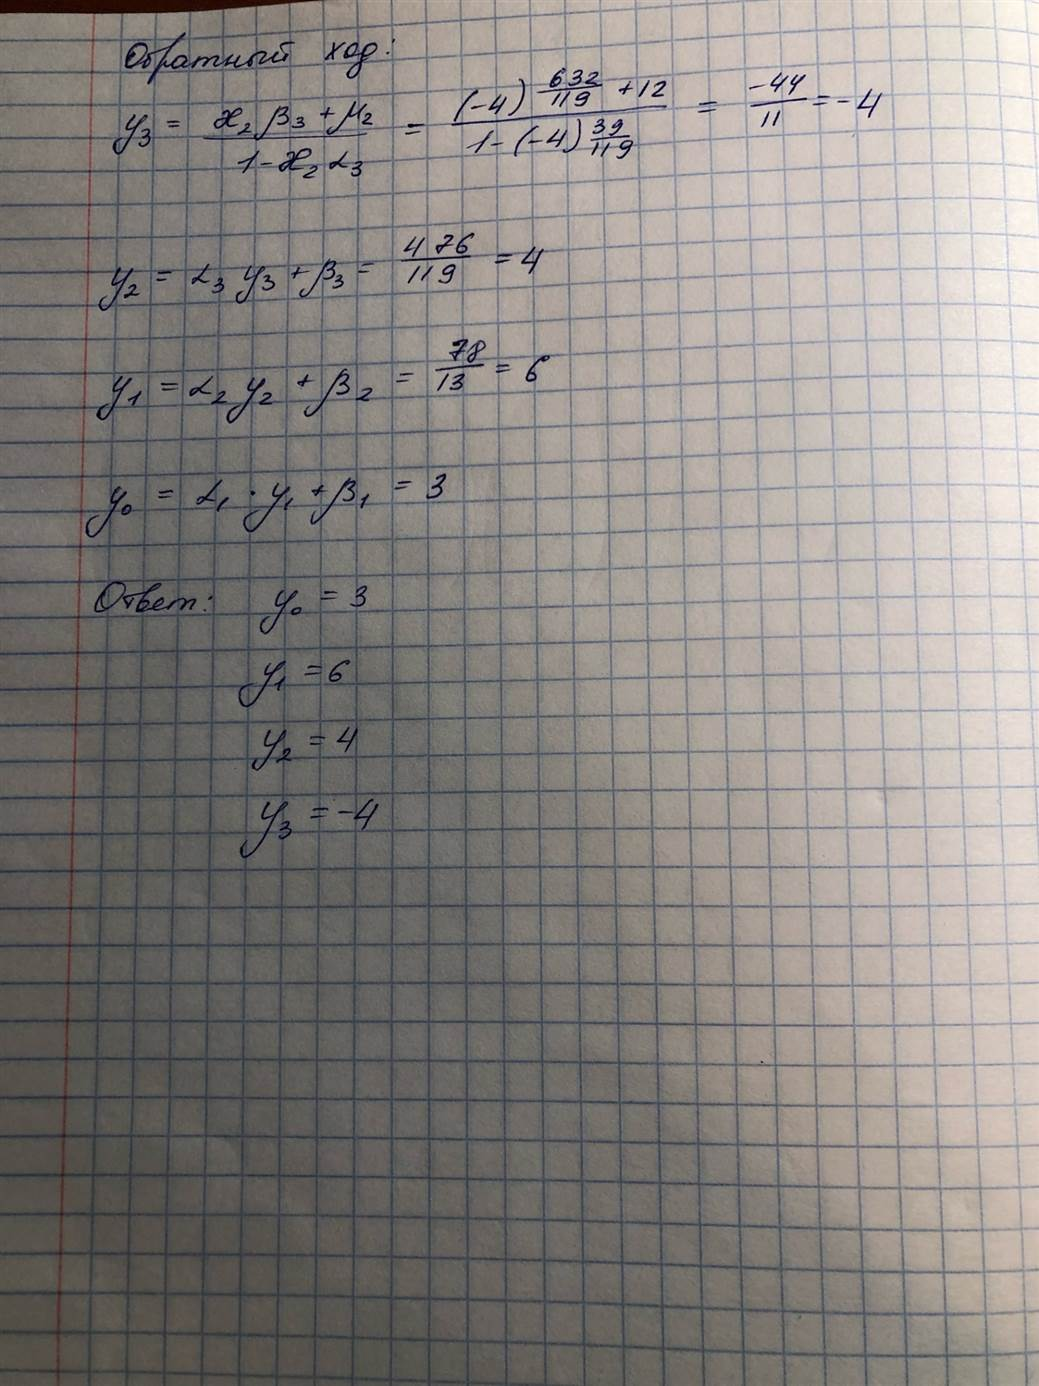 Обратный ход:
y₃ = (ϰ₂ β₃ + μ₂)/(1 - ϰ₂ α₃) = ((-4) 632/119 + 12)/(1 - (-4) 39/119) = -44/11 = -4
y₂ = α₃ y₃ + β₃ = 476/119 = 4
y₁ = α₂ y₂ + β₂ = 78/13 = 6
y₀ = α₁ · y₁ + β₁ = 3
Ответ: y₀ = 3
y₁ = 6
y₂ = 4
y₃ = -4